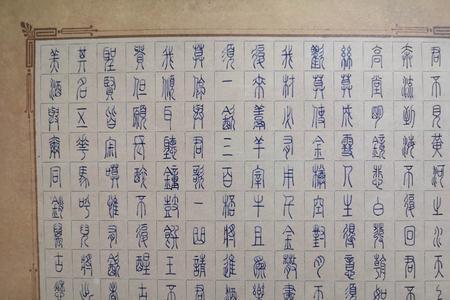 君不見黃河之水天上
奔流到海不復回君不
高堂明鏡悲白髮朝如
絲暮成雪人生得意須
歡莫使金樽空對月天
我材必有用千金散盡
復來烹羊宰牛且為樂
須一飲三百杯將進酒
莫停與君歌一曲請君
我傾耳聽鐘鼓饌玉不
貴但願長醉不復醒古
聖賢皆寂寞惟有飲者
其名五花馬呼兒將出
美酒與爾同銷萬古愁